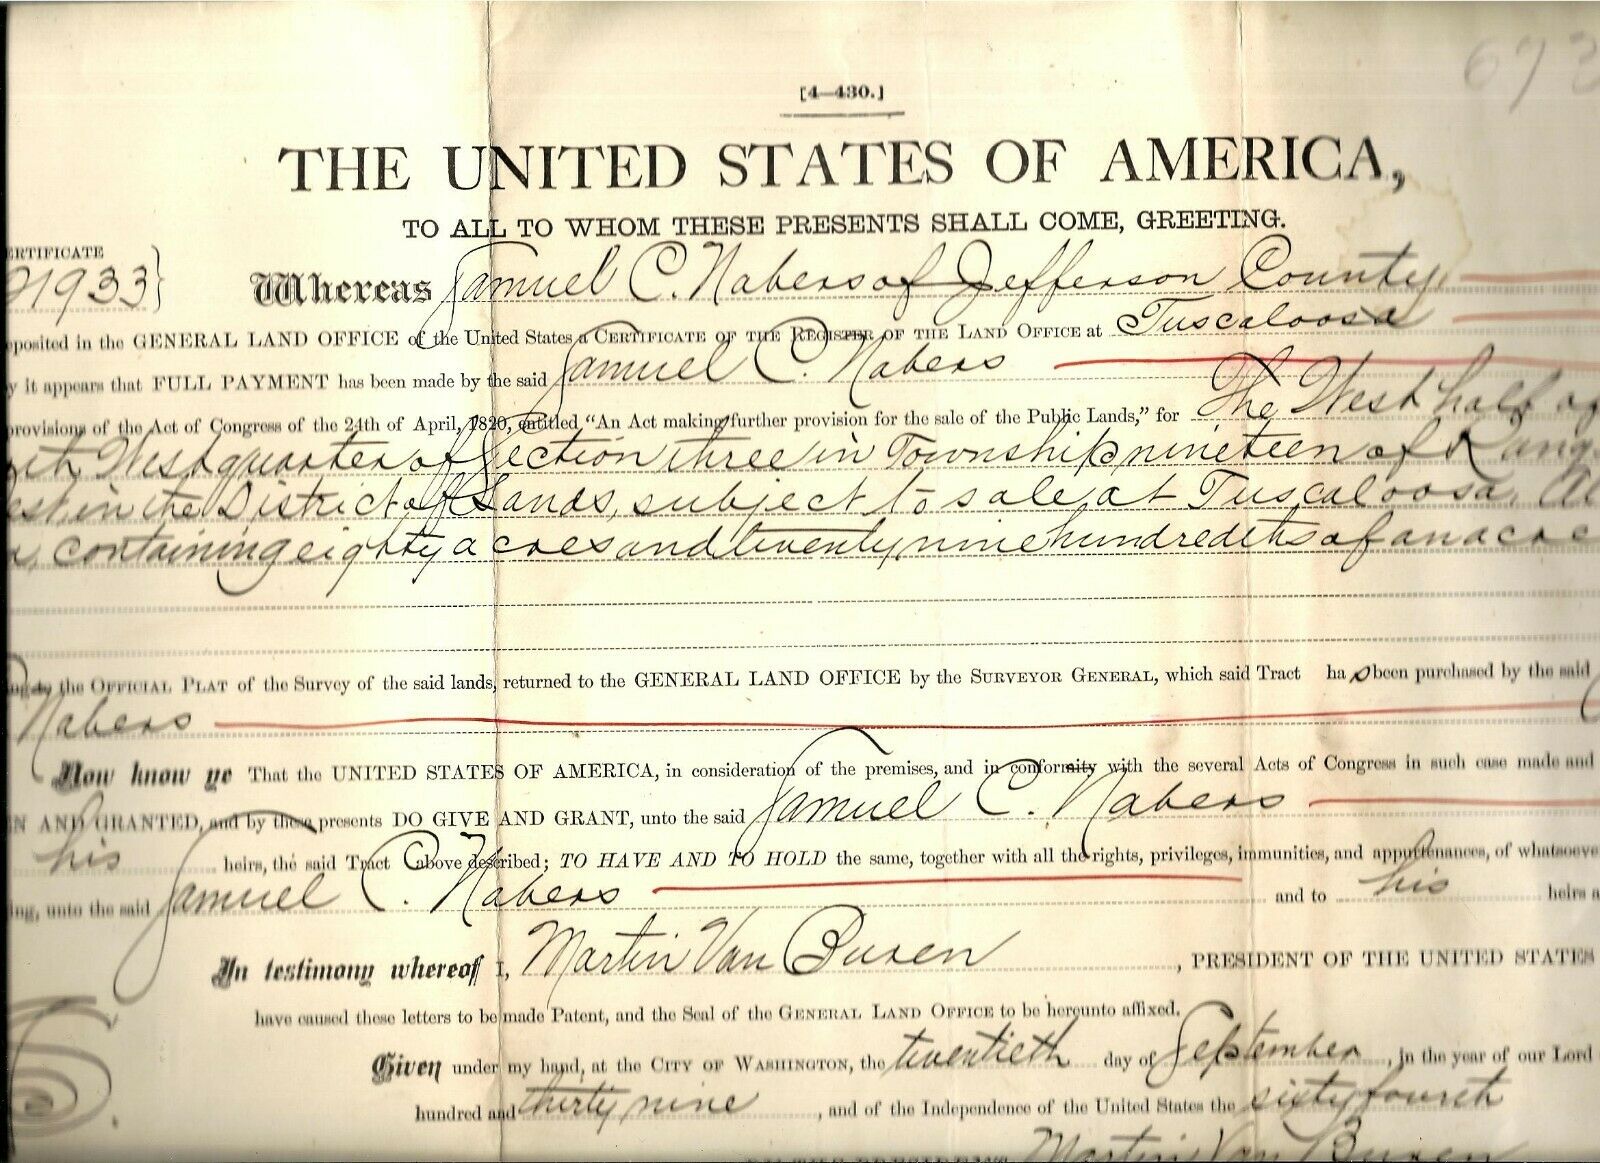 673
[4—430.]
THE UNITED STATES OF AMERICA,
TO ALL TO WHOM THESE PRESENTS SHALL COME, GREETING.
ERTIFICATE
21933} Whereas Samuel C. Nabers of Jefferson County,
eposited in the GENERAL LAND OFFICE of the United States a CERTIFICATE OF THE REGISTER OF THE LAND OFFICE at Tuscaloosa
y it appears that FULL PAYMENT has been made by the said Samuel C. Nabers
provisions of the Act of Congress of the 24th of April, 1820, entitled "An Act making further provision for the sale of the Public Lands," for The West half of
West quarter of Section three in Township nineteen of Rang
est in the District of Lands, subject to sale at Tuscaloosa, Al
a, containing eighty acres and twenty nine hundredths of an acre
the OFFICIAL PLAT of the Survey of the said lands, returned to the GENERAL LAND OFFICE by the SURVEYOR GENERAL, which said Tract has been purchased by the said
Nabers
Now know ye That the UNITED STATES OF AMERICA, in consideration of the premises, and in conformity with the several Acts of Congress in such case made and
EN AND GRANTED, and by these presents DO GIVE AND GRANT, unto the said Samuel C. Nabers
his heirs, the said Tract above described; TO HAVE AND TO HOLD the same, together with all the rights, privileges, immunities, and appurtenances, of whatsoeve
ing, unto the said Samuel C. Nabers and to his heirs a
In testimony whereof I, Martin Van Buren, PRESIDENT OF THE UNITED STATES
have caused these letters to be made Patent, and the Seal of the GENERAL LAND OFFICE to be hereunto affixed.
Given under my hand, at the CITY OF WASHINGTON, the twentieth day of September, in the year of our Lord
hundred and thirty nine, and of the Independence of the United States the sixty fourth
BY THE PRESIDENT: Martin Van Buren